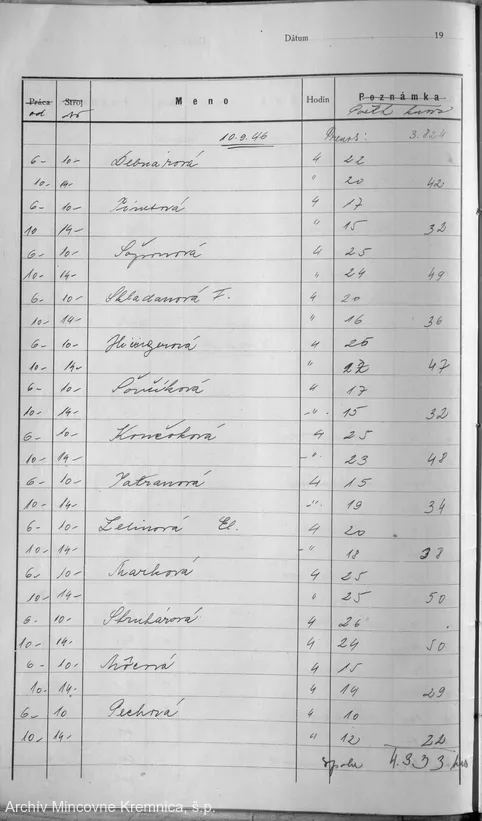 Dátum 19
Práca Stroj Meno Hodin Poznámka
od do
10.9.46 Prenos: 3.824
6- 10- Debnárová 4 22
10- 14- " 20 42
6- 10- 4 17
10 14- " 15 32
6- 10- 4 25
10- 14- " 24 49
6- 10- Skladanová F. 4 20
10- 14- " 16 36
6- 10- 4 25
10- 14- " 47
6- 10- 4 17
10- 14- -"- 15 32
6- 10- Končoková 4 25
10- 14- -"- 23 48
6- 10- Patranová 4 15
10- 14- -"- 19 34
6- 10- El. 4 20
10- 14- -" 18 38
6- 10- Marková 4 25
10- 14- " 25 50
6- 10- Struhárová 4 26
10- 14- 4 24 50
6- 10- 4 15
10- 14- 4 14 29
6- 10 Pechová 4 10
10- 14- " 12 22
Spolu 4.333 kus
Archív Mincovne Kremnica, š.p.